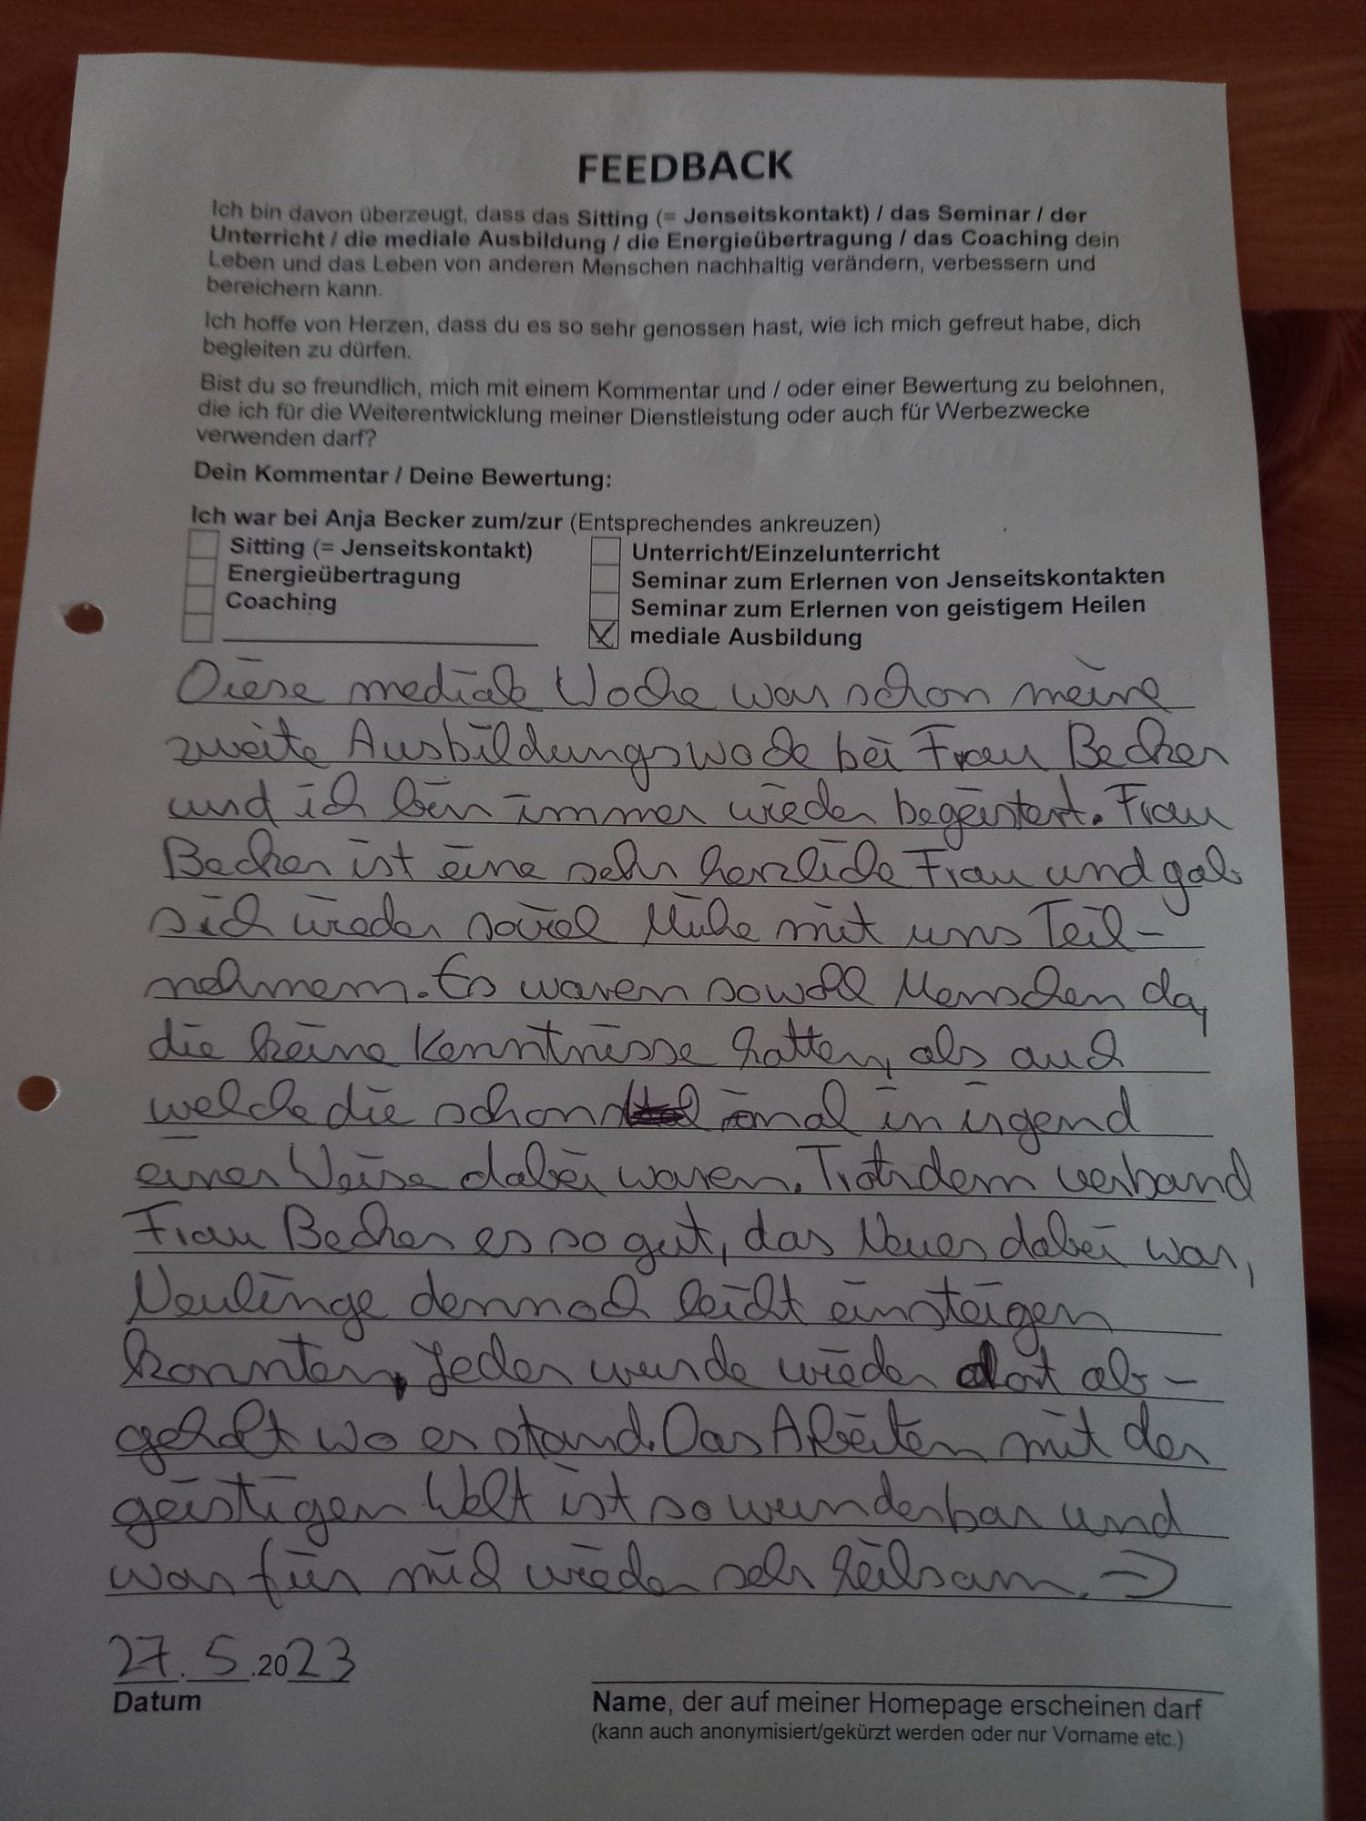 FEEDBACK
Ich bin davon überzeugt, dass das Sitting (= Jenseitskontakt) / das Seminar / der
Unterricht / die mediale Ausbildung / die Energieübertragung / das Coaching dein
Leben und das Leben von anderen Menschen nachhaltig verändern, verbessern und
bereichern kann.
Ich hoffe von Herzen, dass du es so sehr genossen hast, wie ich mich gefreut habe, dich
begleiten zu dürfen.
Bist du so freundlich, mich mit einem Kommentar und / oder einer Bewertung zu belohnen,
die ich für die Weiterentwicklung meiner Dienstleistung oder auch für Werbezwecke
verwenden darf?
Dein Kommentar / Deine Bewertung:
Ich war bei Anja Becker zum/zur (Entsprechendes ankreuzen)
Sitting (= Jenseitskontakt)
Energieübertragung
Coaching
Unterricht/Einzelunterricht
Seminar zum Erlernen von Jenseitskontakten
Seminar zum Erlernen von geistigem Heilen
mediale Ausbildung
Diese mediale Woche war schon meine
zweite Ausbildungswoche bei Frau Becker
und ich bin immer wieder begeistert. Frau
Becker ist eine sehr herzliche Frau und gab
sich wieder soviel Mühe mit uns Teil-
nehmern. Es waren sowohl Menschen da,
die keine Kenntnisse hatten, als auch
welche die schon mal in irgend
einer Weise dabei waren. Trotzdem verband
Frau Becker es so gut, das Neues dabei war,
Neulinge dennoch leicht einsteigen
konnten, Jeder wurde wieder dort ab-
geholt wo er stand. Das Arbeiten mit der
geistigen Welt ist so wunderbar und
war für mich wieder sehr heilsam. =>
27.5.2023
Datum
Name, der auf meiner Homepage erscheinen darf
(kann auch anonymisiert/gekürzt werden oder nur Vorname etc.)